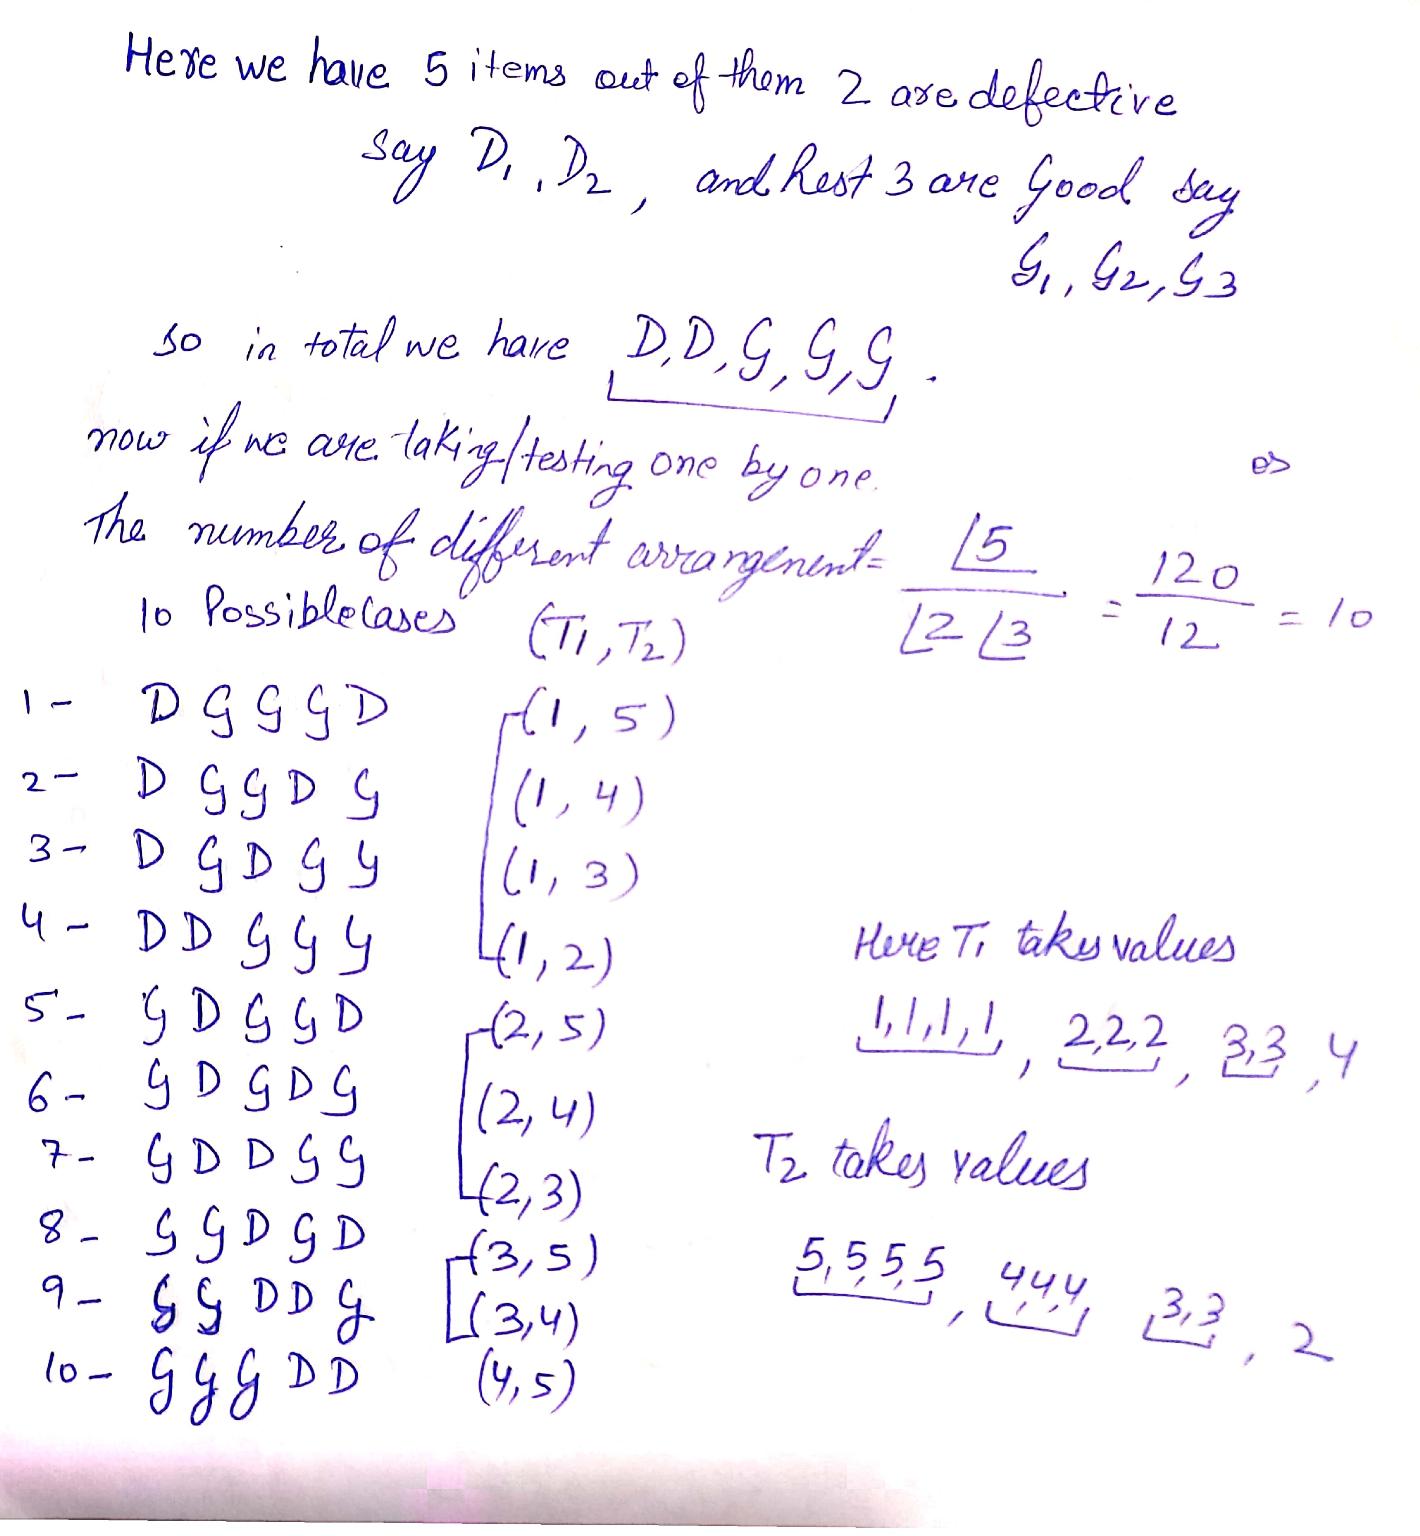 Here we have 5 items out of them 2 are defective
say D1, D2, and Rest 3 are Good say
G1, G2, G3
so in total we have D,D,G,G,G.
now if we are taking/testing one by one.
The number of different arrangement = ⌊5 / ⌊2 ⌊3 = 120 / 12 = 10
10 Possible Cases (T1, T2)
1- D G G G D (1, 5)
2- D G G D G (1, 4)
3- D G D G G (1, 3)
4- D D G G G (1, 2)
Here T1 takes values
5- G D G G D (2, 5)
1,1,1,1, 2,2,2, 3,3, 4
6- G D G D G (2, 4)
7- G D D G G (2, 3)
T2 takes values
8- G G D G D (3, 5)
5,5,5,5, 4,4,4, 3,3, 2
9- G G D D G (3,4)
10- G G G D D (4,5)